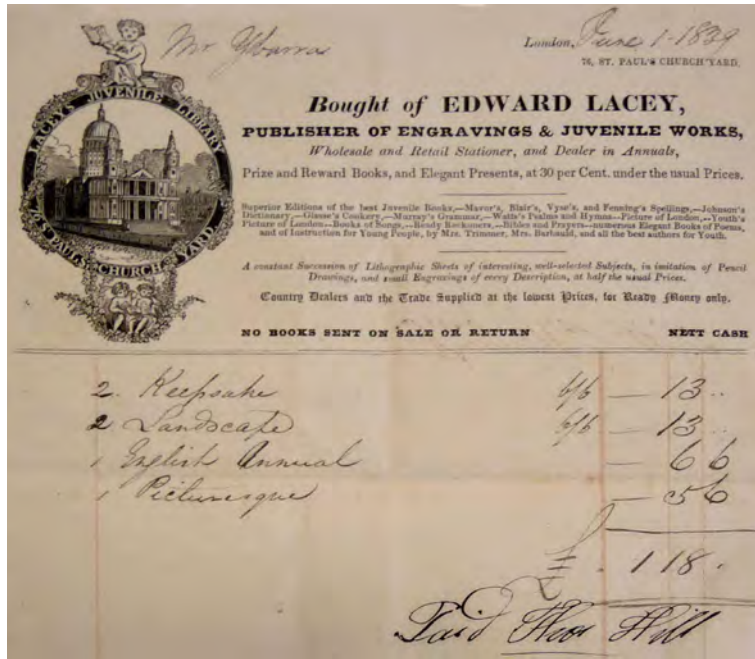 Mr Ybarra
London, June 1 - 1839
76, ST. PAUL'S CHURCH YARD.
LACEY'S JUVENILE LIBRARY
76 ST PAUL'S CHURCH YARD.
Bought of EDWARD LACEY,
PUBLISHER OF ENGRAVINGS & JUVENILE WORKS,
Wholesale and Retail Stationer, and Dealer in Annuals,
Prize and Reward Books, and Elegant Presents, at 30 per Cent. under the usual Prices.
Superior Editions of the best Juvenile Books,—Mavor's, Blair's, Vyse's, and Fenning's Spellings,—Johnson's
Dictionary,—Glasse's Cookery,—Murray's Grammar,—Watts's Psalms and Hymns—Picture of London,—Youth's
Picture of London—Books of Songs,—Ready Reckoners,—Bibles and Prayers—numerous Elegant Books of Poems,
and of Instruction for Young People, by Mrs. Trimmer, Mrs. Barbauld, and all the best authors for Youth.
A constant Succession of Lithographic Sheets of interesting, well-selected Subjects, in imitation of Pencil
Drawings, and small Engravings of every Description, at half the usual Prices.
Country Dealers and the Trade Supplied at the lowest Prices, for Ready Money only.
NO BOOKS SENT ON SALE OR RETURN NETT CASH
2 Keepsake 6/6 — 13 ..
2 Landscape 6/6 — 13 ..
1 English Annual — 6 6
1 Picturesque — 5 6
£ . 1 18 .
Paid Thos Hill